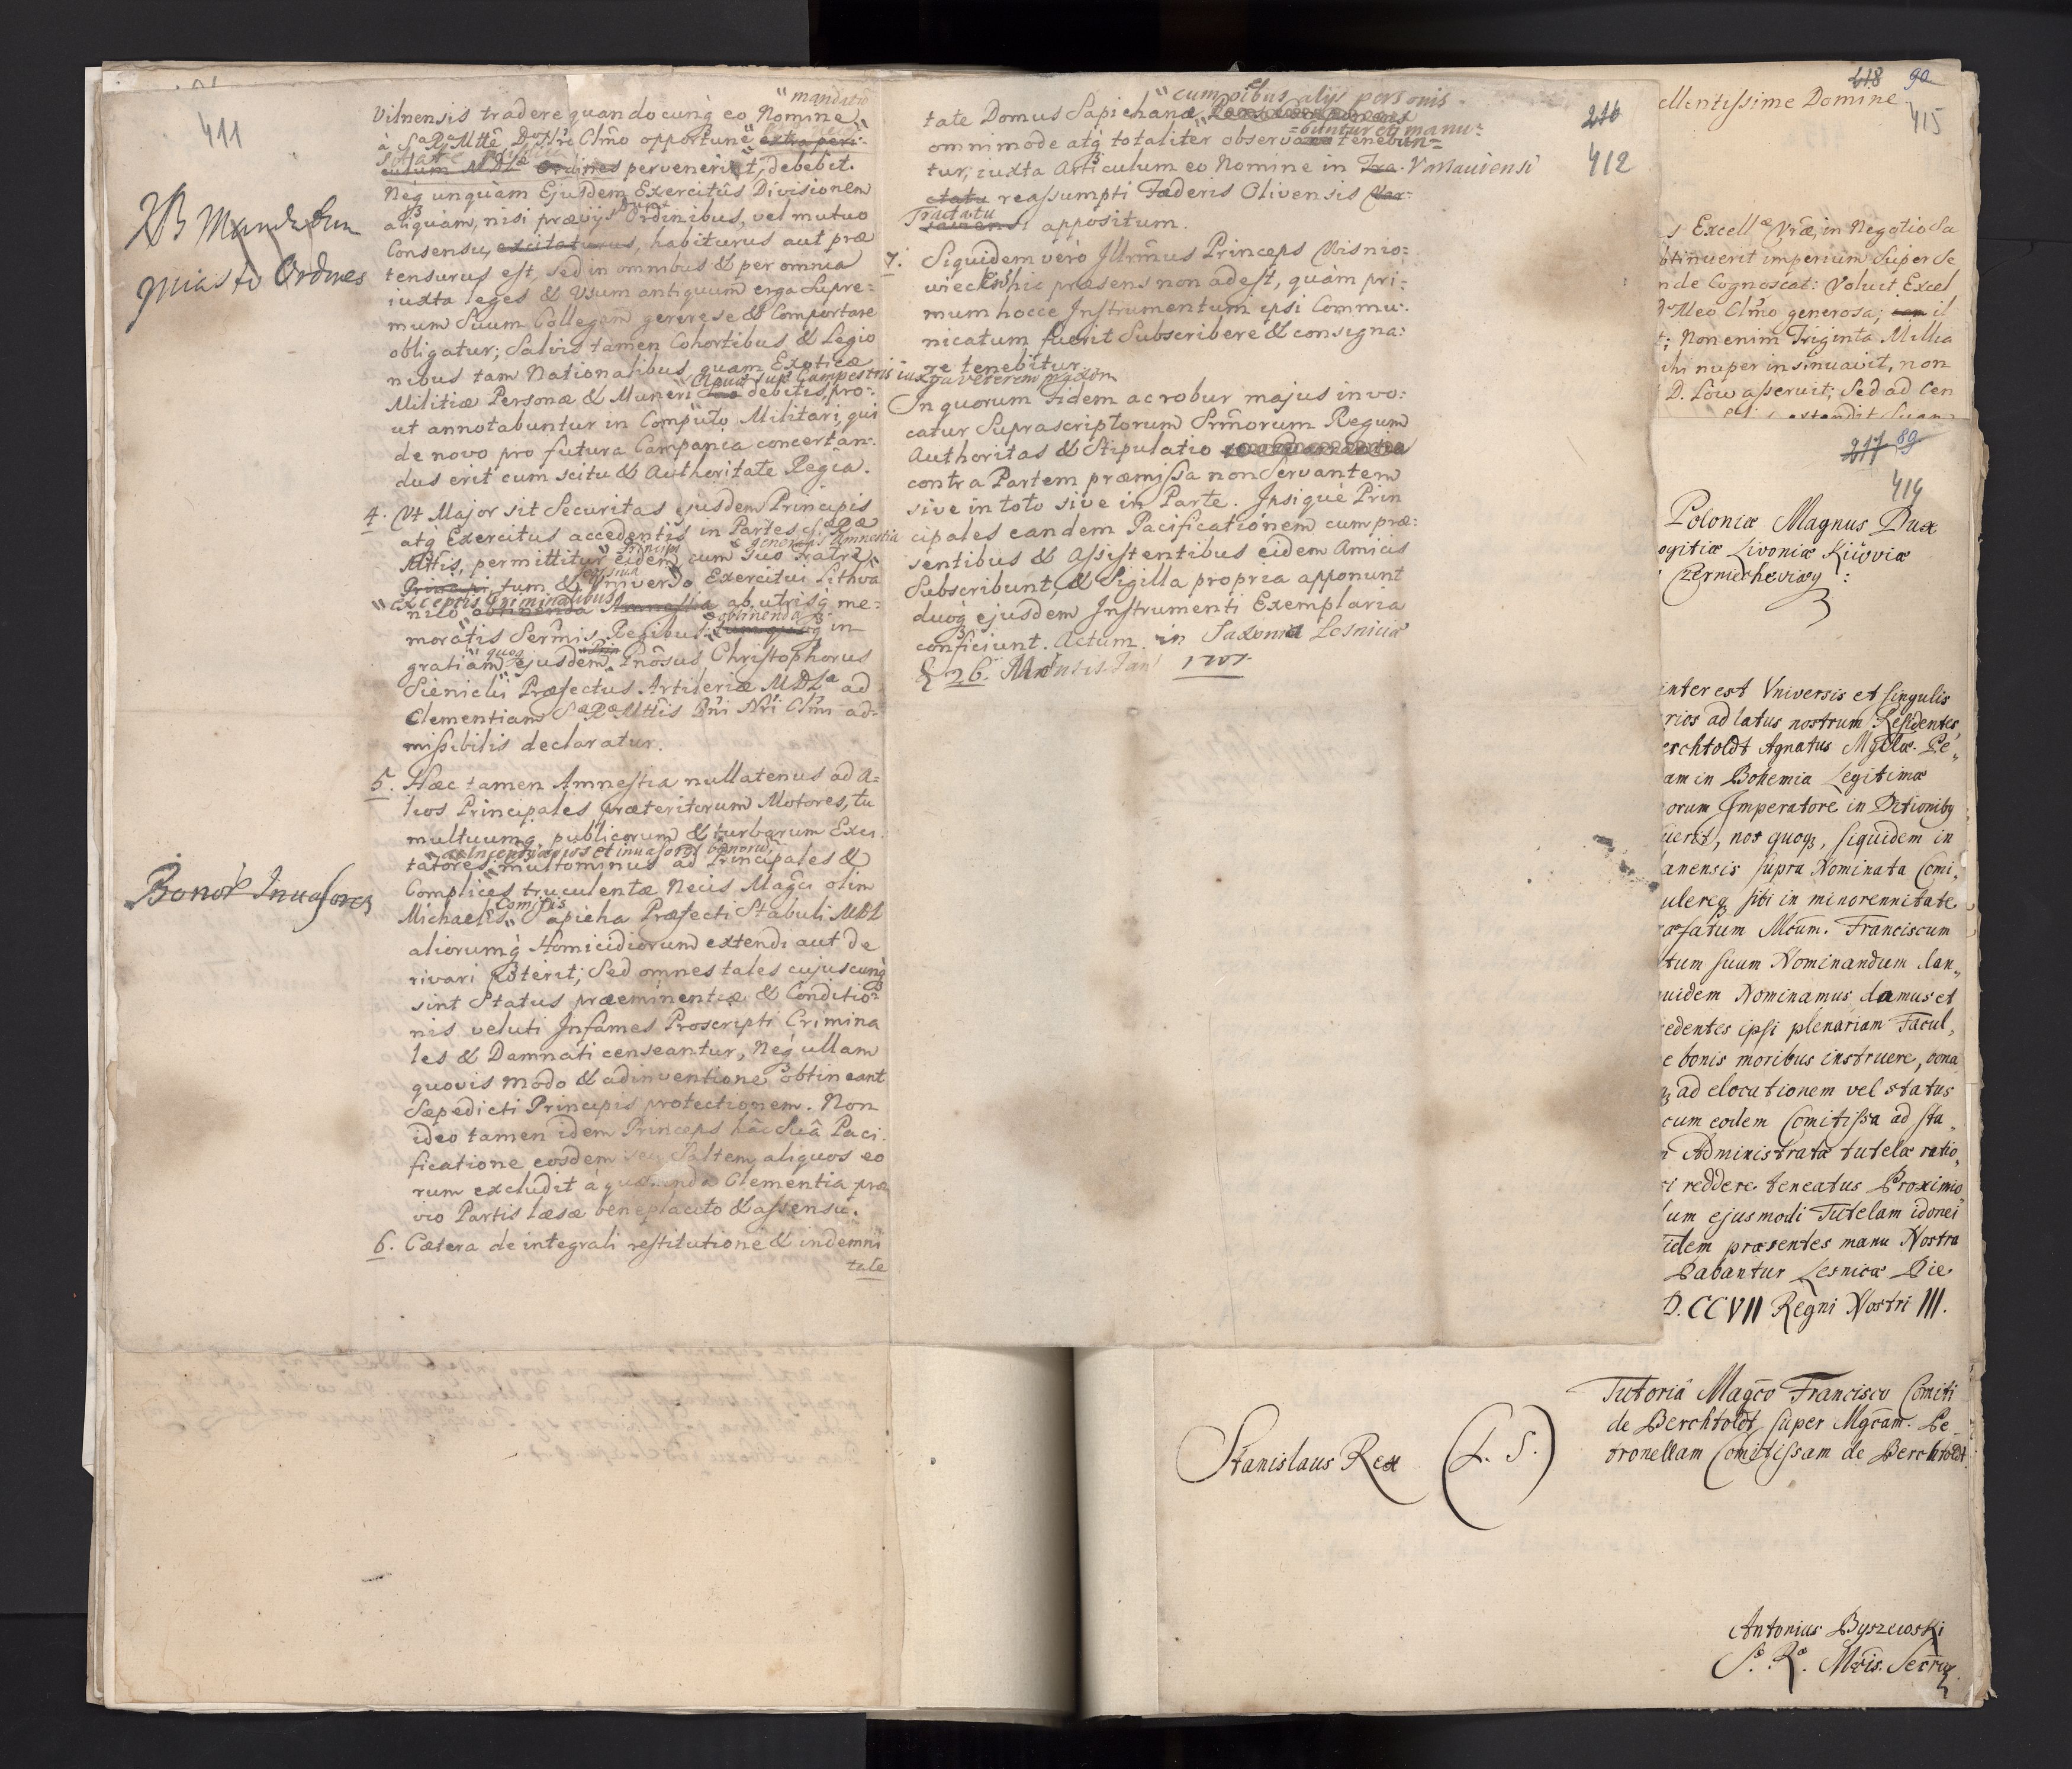 411
NB Mandatum
miasto Ordines
Bonorũ Inuasores
"mandata
Vilnensis tradere quandocunq̀ eo Nomine
à Sᵃ Rᵃ Mttẽ Dⁿᵒ Nr̃i Clm̃o opportunè extra peri-
culum MDLæ Ordines pervenerint, debebit.
Neq̀ unquàm Ejusdem Exercitûs Divisionem
aliquàm, nisi prævijs Ordinibus, vel mutuo
Consensu, excitaturus, habiturus aut præ
tensurus est, sed in omnibus & per omnia
iuxta leges & Usum antiquum erga Supre=
mum Suum Collegam gerere se & Comportare
obligatur; Salvis tamen Cohortibus & Legio
nibus tam Nationalibus quam Exoticæ
Campestri iuxta veterem praxim
Militiæ Personæ & Muneri Suo debitis, pro-
ut annotabuntur in Computo Militari, qui
de novo pro futura Campania concertan-
dus erit cum scitu & Authoritate Regia.
4. Ut Major sit Securitas ejusdem Principis
atq̀ Exercitus accedentis in Partes Sᵃ Rᵃ
generalis Amnestia
Mttis, permittitur eidem cum suo Fratre
Principi, tum & Universo Exercitui Lithva
exceptis Criminalibus
nico obtinenda Amnestia ab utrisq̀ me=
obtinenda
moratis Serm̃is Regibus: tum quoq̀ in
quoq̀
gratiam ejusdem Gñosus Christophorus
Sienicki Præfectus Artileriæ MDLᵃ ad
Clementiam Sᵃ Rᵃ Mttis Dñi Nr̃i Clm̃i ad-
missibilis declaratur.
5. Hæc tamen Amnestia nullatenus ad a-
lios Principales præteritorum Motores, tu
multuumq̀ publicorum & turbarum Exci
et inuasores bonorũ
tatores multominus ad Principales &
Complices truculentæ Necis Magc̃i olim
Comitis
Michaelis Sapieha Præfecti Stabuli MDL
aliorumq̀ Homicidiorum extendi aut de
rivari poterit; Sed omnes tales cujuscunq̀
sint Status præeminentiæ & Conditio-
nis veluti Infames Proscripti Crimina
les & Damnati censeantur, Neq̀ ullam
quovis modo & adinventione obtineant
Sæpedicti Principis protectionem. Non
ideo tamen idem Princeps hâc Suâ Paci-
ficatione eosdem seu Saltem aliquos eo
rum excludit à quærenda Clementia præ
vio Partis læsæ beneplacito & assensu.
6. Cætera de integrali restitutione & indemni
tate
216
412
"cum oĩbus alijs personis
tate Domus Sapiehanæ
buntur et manu-
omnimode atq̀ totaliter observa tenebun=
tur, iuxta Articulum eo Nomine in Tra Varsauiensi
ctatu reassumpti Fæderis Olivensis Var-
Tractatu
saviensi appositum.
7. Siquidem vero Illrm̃us Princeps Wisnio-
wiecki hic præsens non adest, quàm pri-
mum hocce Instrumentum ipsi Commu-
nicatum fuerit Subscribere & consigna-
re tenebitur
In quorum fidem ac robur majus invo-
catur Suprascriptorum Srm̃orum Regum
Authoritas & Stipulatio
contra Partem præmissa non Servantem
sive in toto sive in Parte. Ipsiquè Prin
cipales eandem Pacificationem cum præ-
sentibus & Assistentibus eidem Amicis
Subscribunt, & Sigilla propria apponunt
duoq̀ ejusdem Instrumenti Exemplaria
conficiunt. Actum in Saxonia Lesniciæ
26. Mensis Jan 1707.
218 90
415
ellentissime Domine
Excellæ Vræ, in Negotio Sa
btinuerit imperium Super Se
nde Cognoscat: Voluit Excel
Meo Clm̃o generosa;
Non enim Triginta Millia
hi nuper insinuavit, non
D. Löw asseruit; Sed ad Cen
217 89
414
Poloniæ Magnus Dux
ogitiæ Livoniæ Kijoviæ
Czerniecheviæq̀:
interest Universis et singulis
rios ad latus nostrum Residentes
erchtoldt Agnatus Mgcæ. Pe„
am in Bohemia Legitimæ
orum Imperatore in Ditionibq
uerit, nos quoq̀, siquidem in
anensis supra Nominata Comi„
ulereq̀ sibi in minorennitate
æfatum Mcum. Franciscum
tum suum Nominandum clan„
uidem Nominamus damus et
edentes ipsi plenariam Facul„
e bonis moribus instruere, bona
ad elocationem vel status
cum eodem Comitissa ad sta„
Administratæ tutelæ ratio„
i reddere teneatur Proximio„
um ejusmodi Tutelam idonei
idem præsentes manu Nostra
Dabantur Lesnicæ Die
D.CCVII Regni Nostri III.
Tutoria Magc̃o Francisco Comiti
de Berchtoldt super Mgcam. Pe„
tronellam Comitissam de Berchtoldt.
Stanislaus Rex (L. S.)
Antonius Byszewski
Sæ. Ræ. Mttis. Secrius